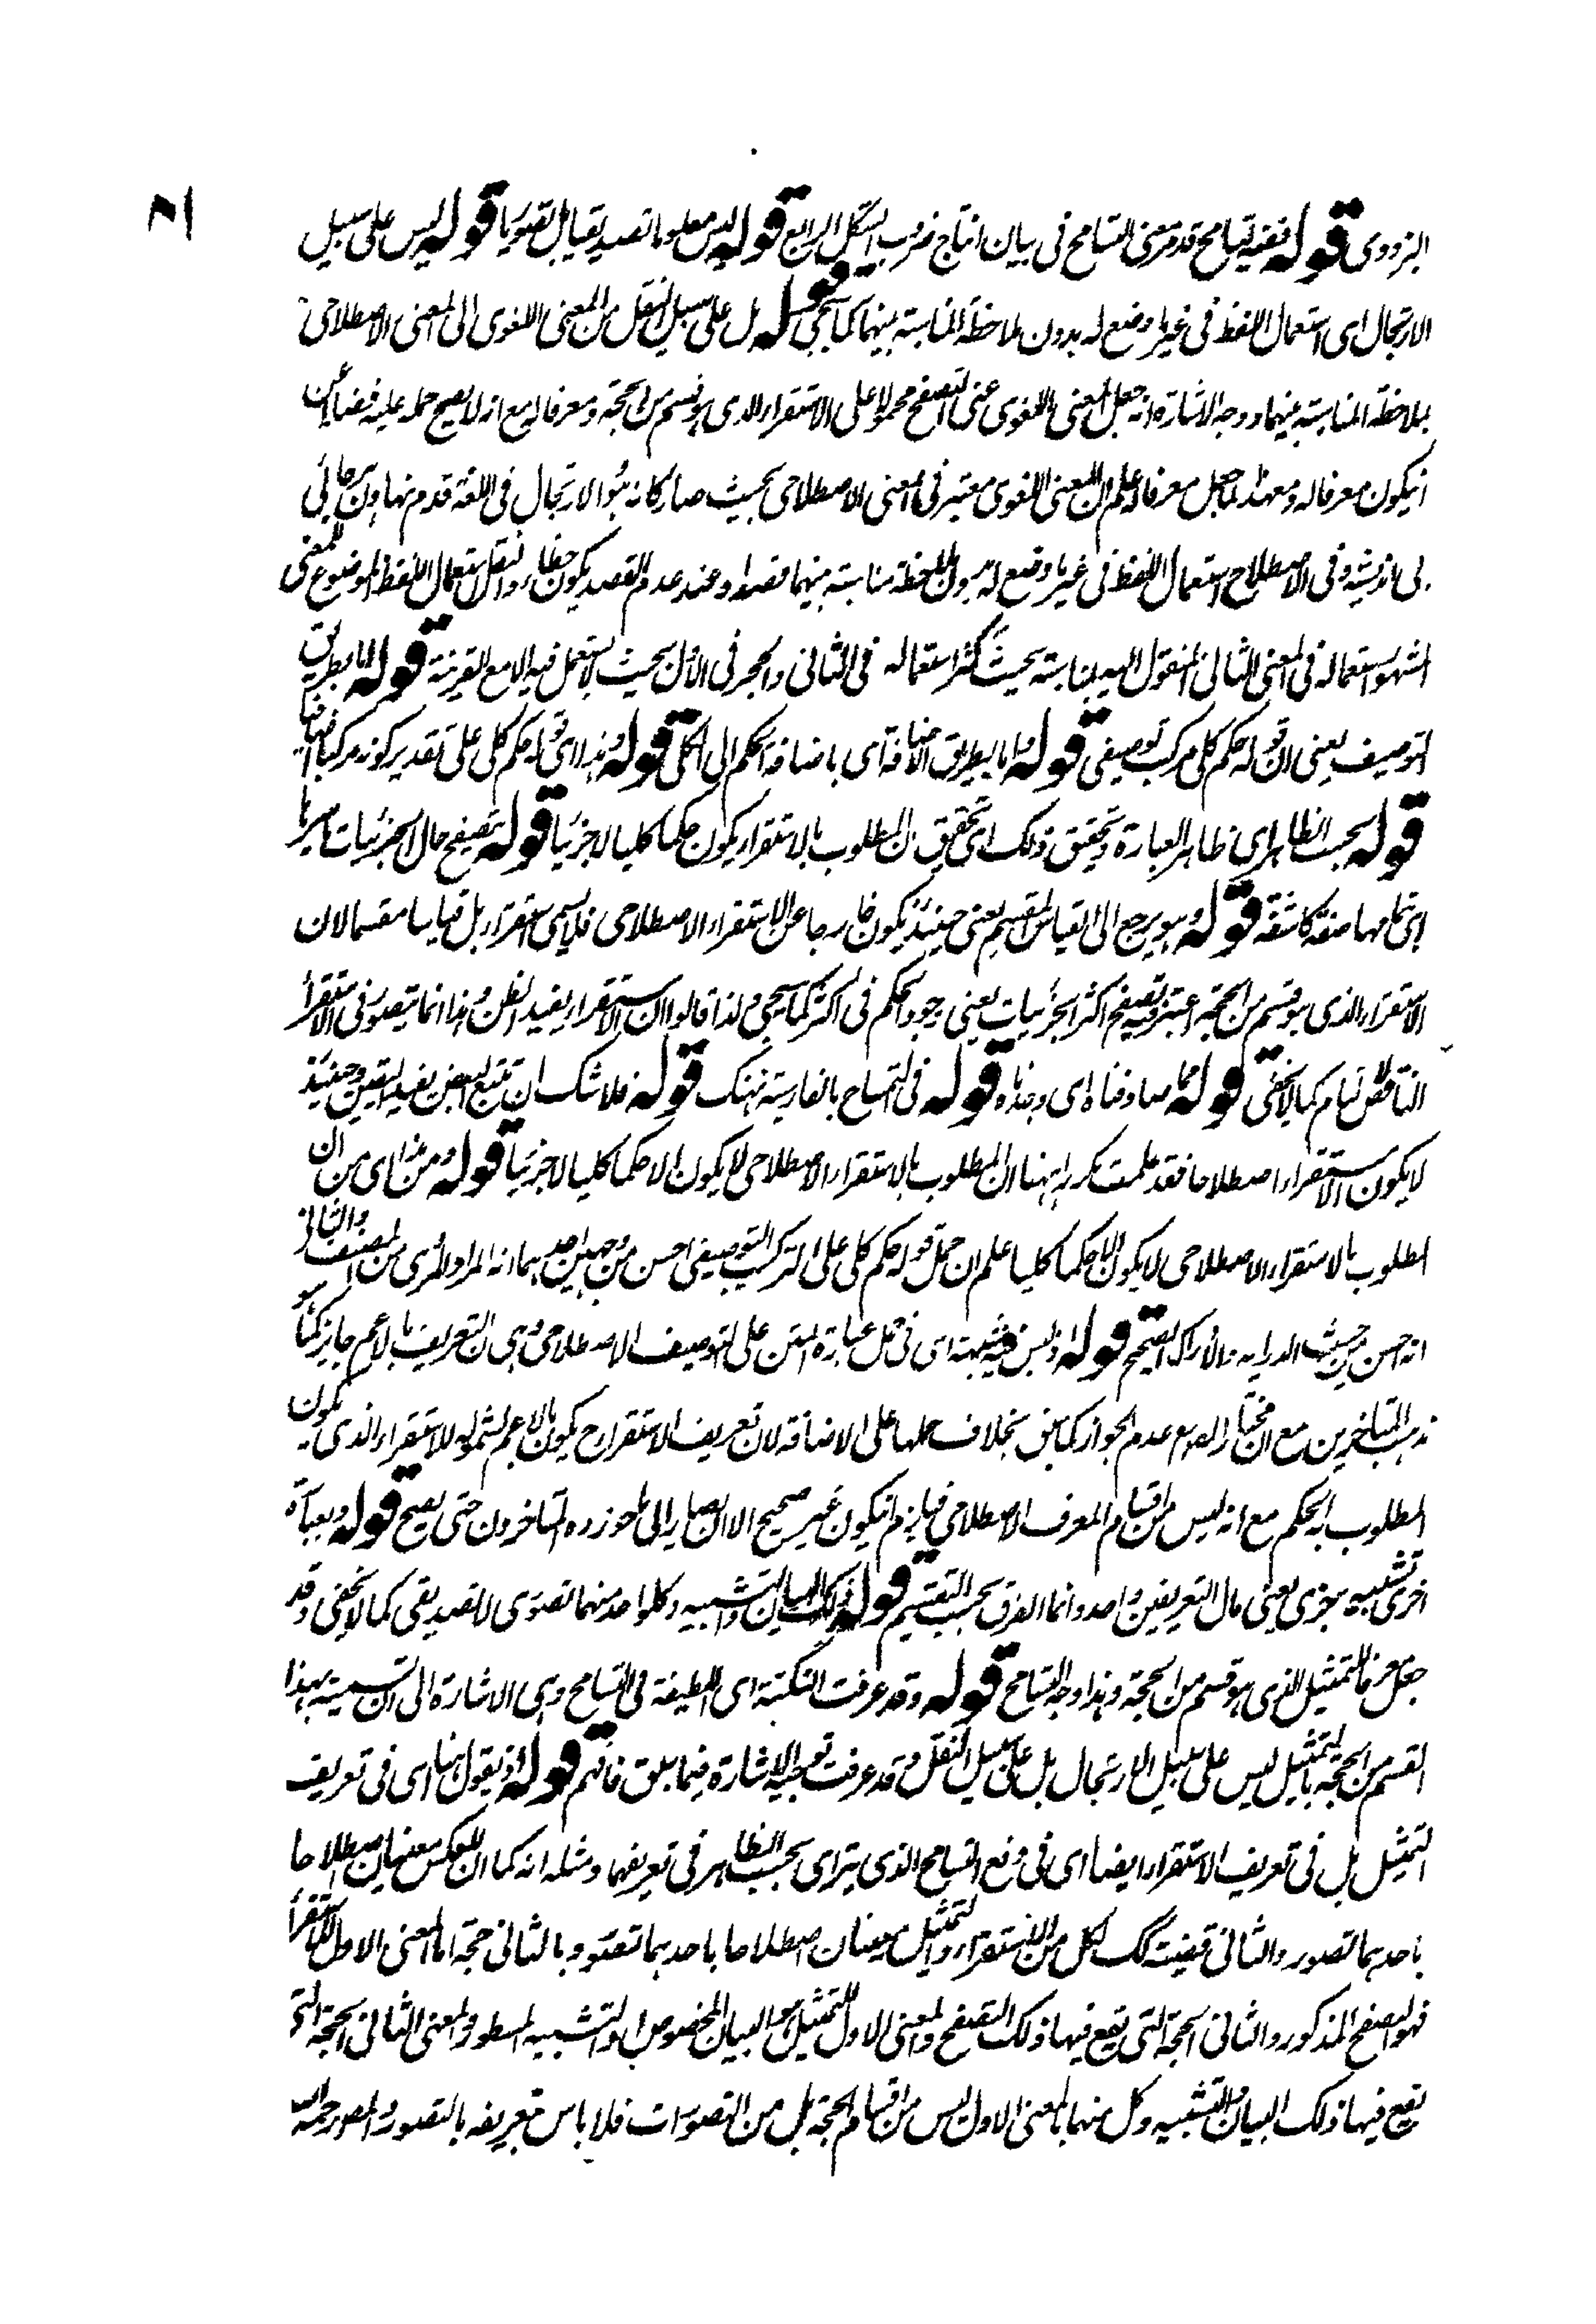 ۸۱
اليزدوى قوله ففيه تسامح قد مر منى التسامح فى بيان انتاج ضروب الشكل الرابع قوله ليس معلوما تصديقيا بل تصوريا قوله ليس على سبيل
الارتجال اى استعمال اللفظ فى غير ما وضع له بدون ملاحظة المناسبة بينهما كما سيجئ قوله بل على سبيل النقل من المعنى اللغوى الى المعنى الاصطلاحى
بملاحظة المناسبة بينهما ووجه الاشارة انه جعل المعنى اللغوى اعنى التصفح محمولا على الاستقراء الذى هو قسم من الحجة ومعرفا له مع انه لا يصح حمله عليه فضلا عن
ان يكون معرفا له ومع هذا لما جعل معرفا له علم ان المعنى اللغوى معتبر فى المعنى الاصطلاحى بحيث صار كانه هو الارتجال فى اللغة
بى انديشه وفى الاصطلاح استعمال اللفظ فى غير ما وضع له بدون ملاحظة مناسبة بينهما قصدا وعند عدم القصد يكون خطاء والنقل استعمال اللفظ الموضوع لمعنى
المشهور استعماله فى المعنى الثانى المنقول اليه لمناسبة بحيث كثر استعماله فى الثانى وهجر فى الاول بحيث لا يستعمل فيه الا مع القرينة قوله اما بطريق
التوصيف يعنى ان قوله حكم كلى مركب توصيفى قوله واما بطريق الاضافة اى باضافة الحكم الى الكلى قوله وهذا اى قوله حكم كلى على تقدير كونه مركبا اضافيا
قوله بحسب الظاهر اى ظاهر العبارة وتحقيق ذلك اى تحقيق ان المطلوب بالاستقراء يكون حكما كليا لا جزئيا قوله بتصفح حال الجزئيات باسرها
اى تمامها صفة كاشفة قوله وهو يرجع الى القياس المقسم يعنى حينئذ يكون خارجا عن الاستقراء الاصطلاحى فلا يسمى استقراء بل قياسا مقسما لان
الاستقراء الذى هو قسم من الحجة اعتبر فيه تصفح اكثر الجزئيات يعنى وجود الحكم فى اكثر كما سيجئ ولذا قالوا ان الاستقراء يفيد الظن وهذا انما يتصور فى الاستقراء
الناقص لا التام كما لا يخفى قوله مما صادفناه اى وجدناه قوله فى التمساح بالفارسية نهنك قوله فلا شك ان تتبع البعض يفيد اليقين وحينئذ
لا يكون الاستقراء اصطلاحا فقد علمت مكررا ههنا ان المطلوب بالاستقراء الاصطلاحى لا يكون الا حكما كليا لا جزئيا قوله ومن هذا اى من ان
المطلوب بالاستقراء الاصطلاحى لا يكون الا حكما كليا علم ان حمل قوله حكم كلى على التركيب التوصيفى احسن من وجهين احدهما انه المراد المروى من المصنف والثانى
انه احسن من حيث الدراية والادراك الصحيح قوله اذ ليس فيه شبهة اى فى حمل عبارة المتن على التوصيف الاصطلاحى وهى ان التعريف بالاعم جايز كما هو
مذهب المتاخرين مع ان مختار المص مع عدم الجواز كما سبق بخلاف حملها على الاضافة لان تعريف الاستقراء ح يكون بالاعم لشموله للاستقراء الذى يكون
المطلوب به الحكم مع انه ليس من اقسام المعرف الاصطلاحى فيلزم ان يكون غير صحيح الا ان يصار الى ما جوزوه المتاخرون حتى يصح قوله وبعبارة
اخرى تشبيه جزئى يعنى مآل التعريفين واحد وانما الفرق بحسب التقسيم قوله ذلك البيان والتشبيه وكل واحد منهما تصورى لا تصديقى كما لا يخفى وقد
جعل معرفا للتمثيل الذى هو قسم من الحجة وهذا وجه التسامح قوله وقد عرفت النكتة اى اللطيفة فى التسامح وهى الاشارة الى ان تسمية هذا
القسم من الحجة بالتمثيل ليس على سبيل الارتجال بل على سبيل النقل وقد عرفت توجيه الاشارة فيما سبق فافهم قوله اذ يقول ههنا اى فى تعريف
التمثيل بل فى تعريف الاستقراء ايضا اى فى دفع التسامح الذى يترا اى بحسب الظاهر فى تعريفهما ومثله انه كما ان للعكس معنيان اصطلاحا
باحدهما تصور والثانى قضية كك لكل من الاستقراء والتمثيل معنيان اصطلاحا باحدهما تصور وبالثانى حجة اما المعنى الاول للاستقراء
فهو التصفح المذكور والثانى الحجة التى يقع فيها ذلك التصفح والمعنى الاول للتمثيل هو البيان المخصوص او التشبيه المسطور والمعنى الثانى الحجة التى
يقع فيها ذلك البيان والتشبيه وكل منهما بالمعنى الاول ليس من اقسام الحجة بل من التصورات فلا باس بتعريفه بالتصور والمصر رحمه الله